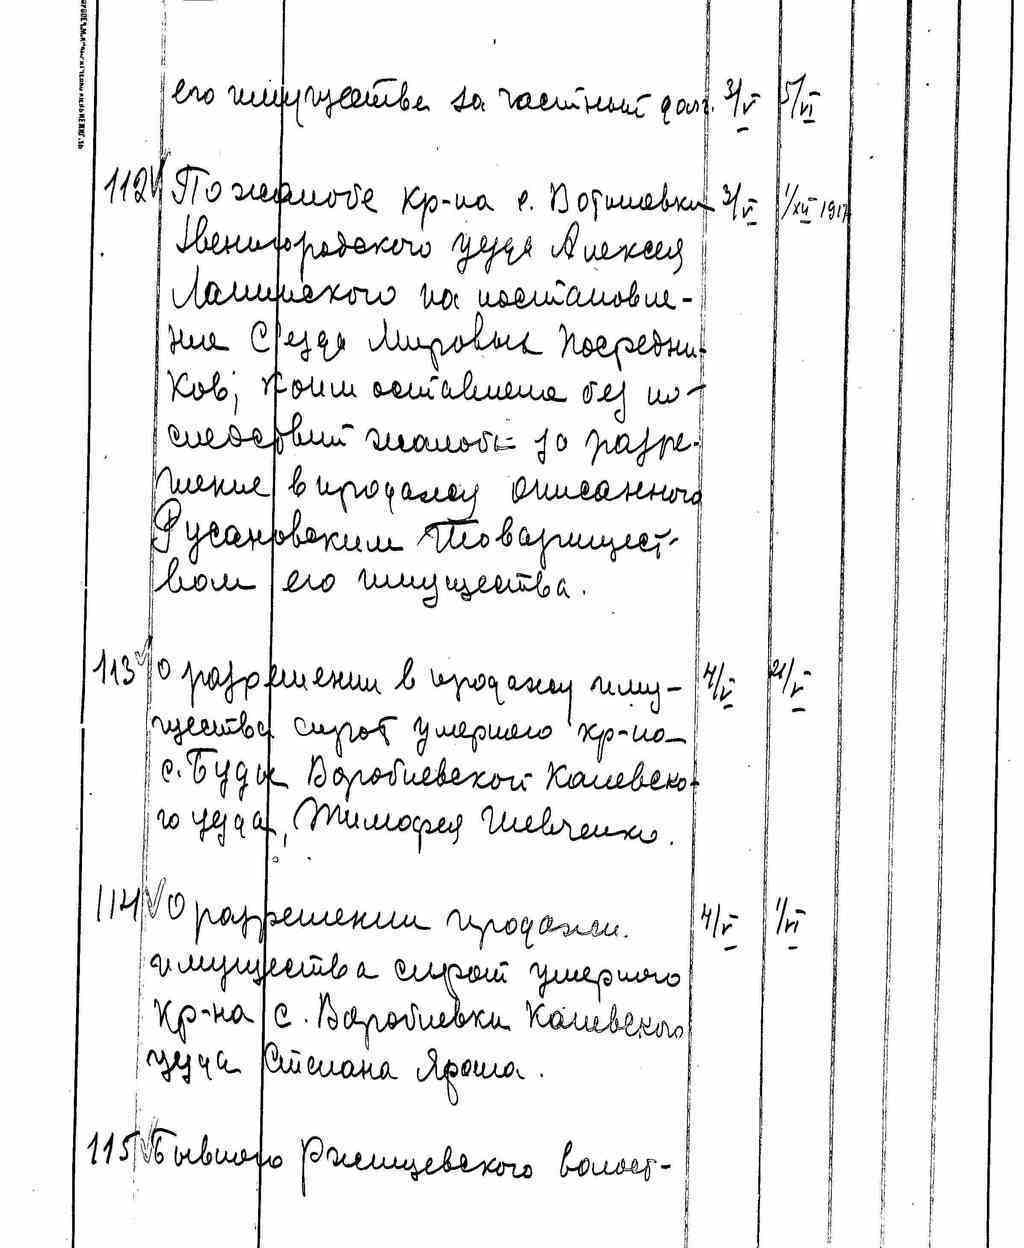 его имущества за частный долг. 3/V 5/VI
112 По жалобе кр-на с. Вотылевки 3/V 1/XII 1917
Звенигородского уезда Алексея
на постановле-
ние С'езда Мировых Посредни-
ков, коим оставлена без по-
следствий жалоба за разре-
шение в продажу описанного
Русановским Товарищест-
вом его имущества.
113 О разрешении в продажу иму- 4/V 21/V
щества сирот умершего кр-на
с. Буды Воробиевской Каневско-
го уезда, Тимофея Шевченко.
114 О разрешении продажи 4/V 1/VI
имущества сирот умершего
кр-на с. Воробиевки Каневского
уезда Степана Яроша.
115 Бывшего Ржищевского волост-